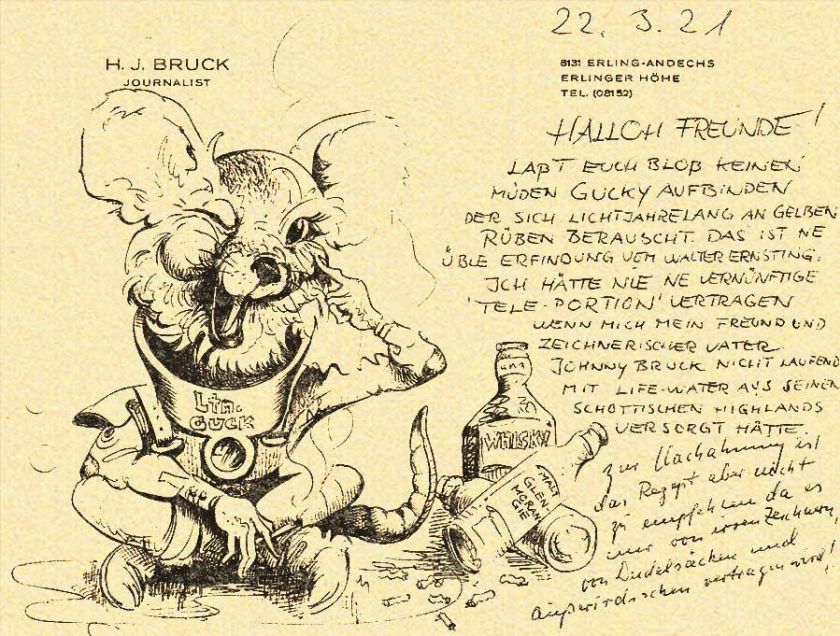 22. 3. 21
H. J. BRUCK
JOURNALIST
8131 ERLING-ANDECHS
ERLINGER HÖHE
TEL. (08152)
HALLOH FREUNDE!
LAßT EUCH BLOß KEINEN
MÜDEN GUCKY AUFBINDEN
DER SICH LICHTJAHRELANG AN GELBEN
RÜBEN BERAUSCHT. DAS IST NE
ÜBLE ERFINDUNG VOM WALTER ERNSTING.
ICH HÄTTE NIE NE VERNÜNFTIGE
'TELE-PORTION' VERTRAGEN
WENN MICH MEIN FREUND UND
ZEICHNERISCHER VATER
JOHNNY BRUCK NICHT LAUFEND
MIT LIFE-WATER AUS SEINEN
SCHOTTISCHEN HIGHLANDS
VERSORGT HÄTTE.
Zur Nachahmung ist
das Rezept aber nicht
zu empfehlen da es
nur von irren Zeichnern,
von Dudelsäcken und
außerirdischen vertragen wird!
Ltn.
GUCK
WHISKY
MALT
GLEN-
MORAN
GIE